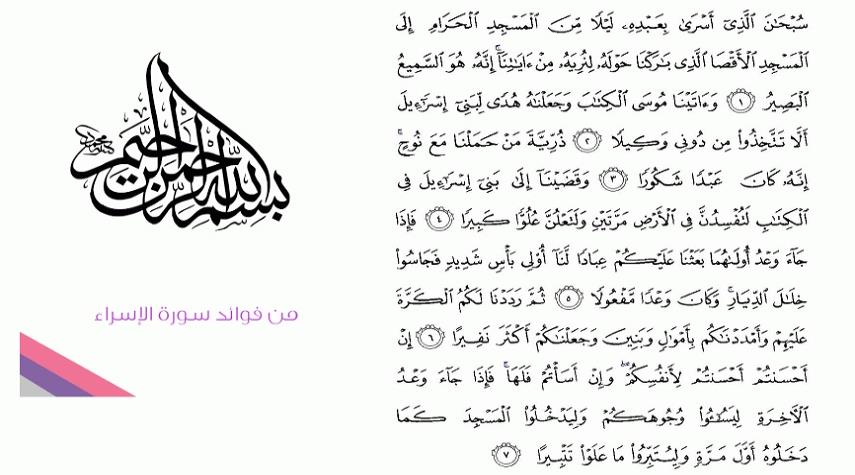 سُبْحَٰنَ ٱلَّذِىٓ أَسْرَىٰ بِعَبْدِهِۦ لَيْلًا مِّنَ ٱلْمَسْجِدِ ٱلْحَرَامِ إِلَى
ٱلْمَسْجِدِ ٱلْأَقْصَا ٱلَّذِى بَٰرَكْنَا حَوْلَهُۥ لِنُرِيَهُۥ مِنْ ءَايَٰتِنَآ ۚ إِنَّهُۥ هُوَ ٱلسَّمِيعُ
ٱلْبَصِيرُ ١ وَءَاتَيْنَا مُوسَى ٱلْكِتَٰبَ وَجَعَلْنَٰهُ هُدًى لِّبَنِىٓ إِسْرَٰٓءِيلَ
أَلَّا تَتَّخِذُوا۟ مِن دُونِى وَكِيلًا ٢ ذُرِّيَّةَ مَنْ حَمَلْنَا مَعَ نُوحٍ ۚ
إِنَّهُۥ كَانَ عَبْدًا شَكُورًا ٣ وَقَضَيْنَآ إِلَىٰ بَنِىٓ إِسْرَٰٓءِيلَ فِى
ٱلْكِتَٰبِ لَتُفْسِدُنَّ فِى ٱلْأَرْضِ مَرَّتَيْنِ وَلَتَعْلُنَّ عُلُوًّا كَبِيرًا ٤ فَإِذَا
جَآءَ وَعْدُ أُولَىٰهُمَا بَعَثْنَا عَلَيْكُمْ عِبَادًا لَّنَآ أُو۟لِى بَأْسٍ شَدِيدٍ فَجَاسُوا۟
خِلَٰلَ ٱلدِّيَارِ ۚ وَكَانَ وَعْدًا مَّفْعُولًا ٥ ثُمَّ رَدَدْنَا لَكُمُ ٱلْكَرَّةَ
عَلَيْهِمْ وَأَمْدَدْنَٰكُم بِأَمْوَٰلٍ وَبَنِينَ وَجَعَلْنَٰكُمْ أَكْثَرَ نَفِيرًا ٦ إِنْ
أَحْسَنتُمْ أَحْسَنتُمْ لِأَنفُسِكُمْ ۖ وَإِنْ أَسَأْتُمْ فَلَهَا ۚ فَإِذَا جَآءَ وَعْدُ
ٱلْءَاخِرَةِ لِيَسُۥٓـُٔوا۟ وُجُوهَكُمْ وَلِيَدْخُلُوا۟ ٱلْمَسْجِدَ كَمَا
دَخَلُوهُ أَوَّلَ مَرَّةٍ وَلِيُتَبِّرُوا۟ مَا عَلَوْا۟ تَتْبِيرًا ٧
بسم الله الرحمن الرحيم
من فوائد سورة الإسراء